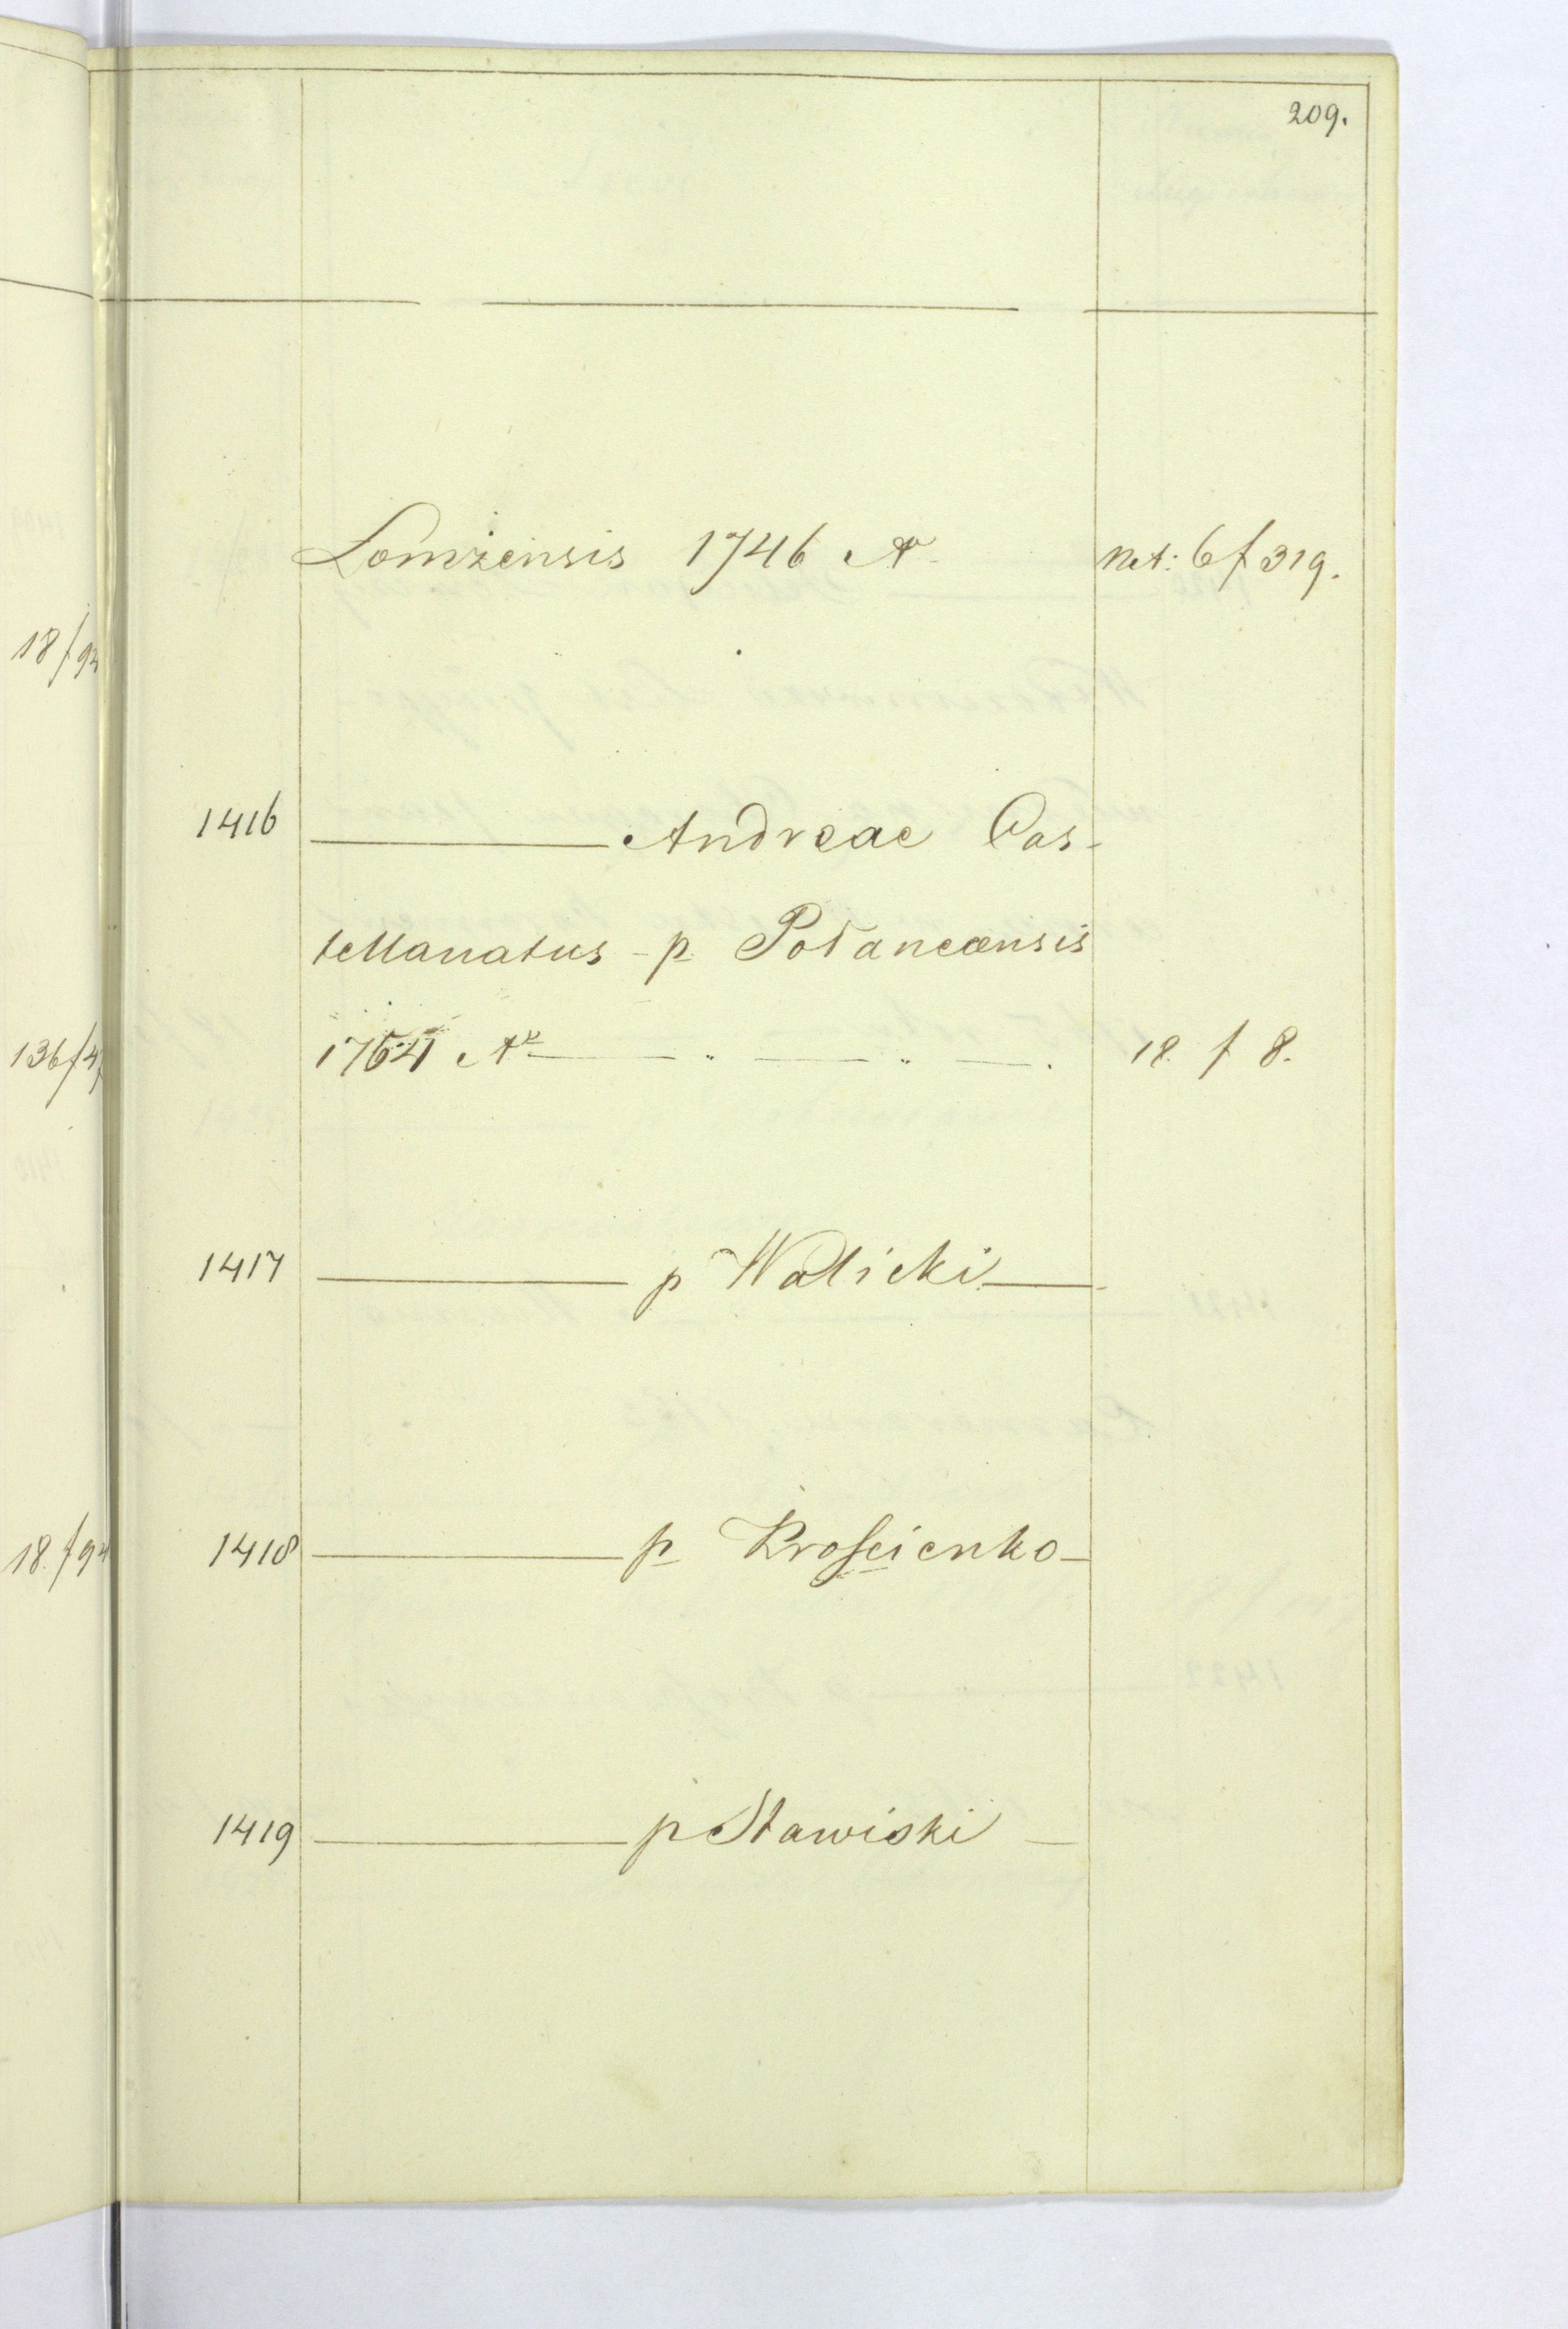 209.
Lomżensis 1746 Ao net: 6 f 319.
18/94
1416 Andreae Cas-
tellanatus p. Połaneænsis
136/4
1764 Ao 18. f 8.
1417 p Walicki
18. f 94
1418 p Krościenko
1419 p Stawiski